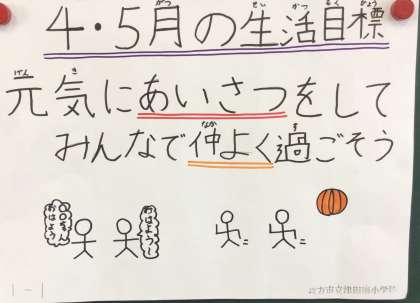 4・5月の生活目標
元気にあいさつをして
みんなで仲よく過ごそう
おはよう
おはよう!